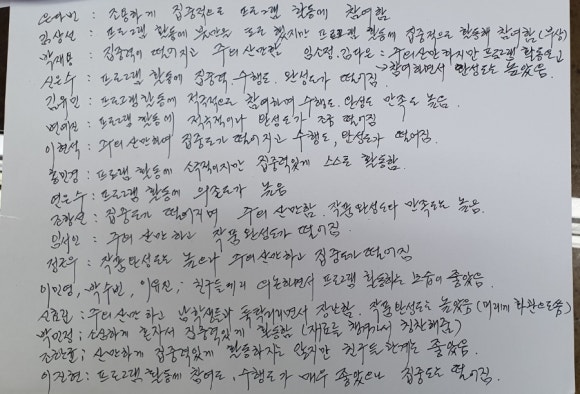 윤하빈 : 조용하게 집중적으로 프로그램 활동에 참여함
김상선 : 프로그램 활동에 하지만 프로그램 활동에 집중적으로 활동에 참여함
박재용 : 집중력이 떨어지고 주의산만함 임소정, 김다은 : 주의산만하지만 프로그램 활동
신은수 : 프로그램 활동에 집중력, 수행도, 완성도가 떨어짐. 참여하면서 완성도도 높았음.
김유민 : 프로그램활동에 적극적으로 참여하며 수행도, 완성도 만족도 높음.
변예진 : 프로그램 활동에 적극적이나 완성도가 조금 떨어짐
이현석 : 주의산만하며 집중도가 떨어지고 수행도, 완성도가 떨어짐.
홍민경 : 프로그램 활동에 소극적이지만 집중력있게 스스로 활동함.
연은수 : 프로그램 활동에 의존도가 높음
조항선 : 집중도가 떨어지며 주의산만함. 작품완성도와 만족도는 높음.
임서인 : 주의산만하고 작품완성도가 떨어짐
정조우 : 작품완성도는 높으나 주의산만하고 집중도가 떨어짐
이민영, 박수빈, 이유진 ; 친구들에게 의논하면서 프로그램 활동하는 모습이 좋았음.
신효림 : 주의산만하고 남학생들과 투닥거리면서 장난함. 작품완성도는 높았음
박민정 ; 소소하게 혼자서 집중력있게 활동함 (재료를 챙겨와서 칭찬해줌)
조란훈 ; 산만하게 집중력있게 활동하지는 않지만 친구들 관계는 좋았음.
이진현 : 프로그램 활동에 참여도, 수행도가 매우 좋았으나 집중도는 떨어짐.